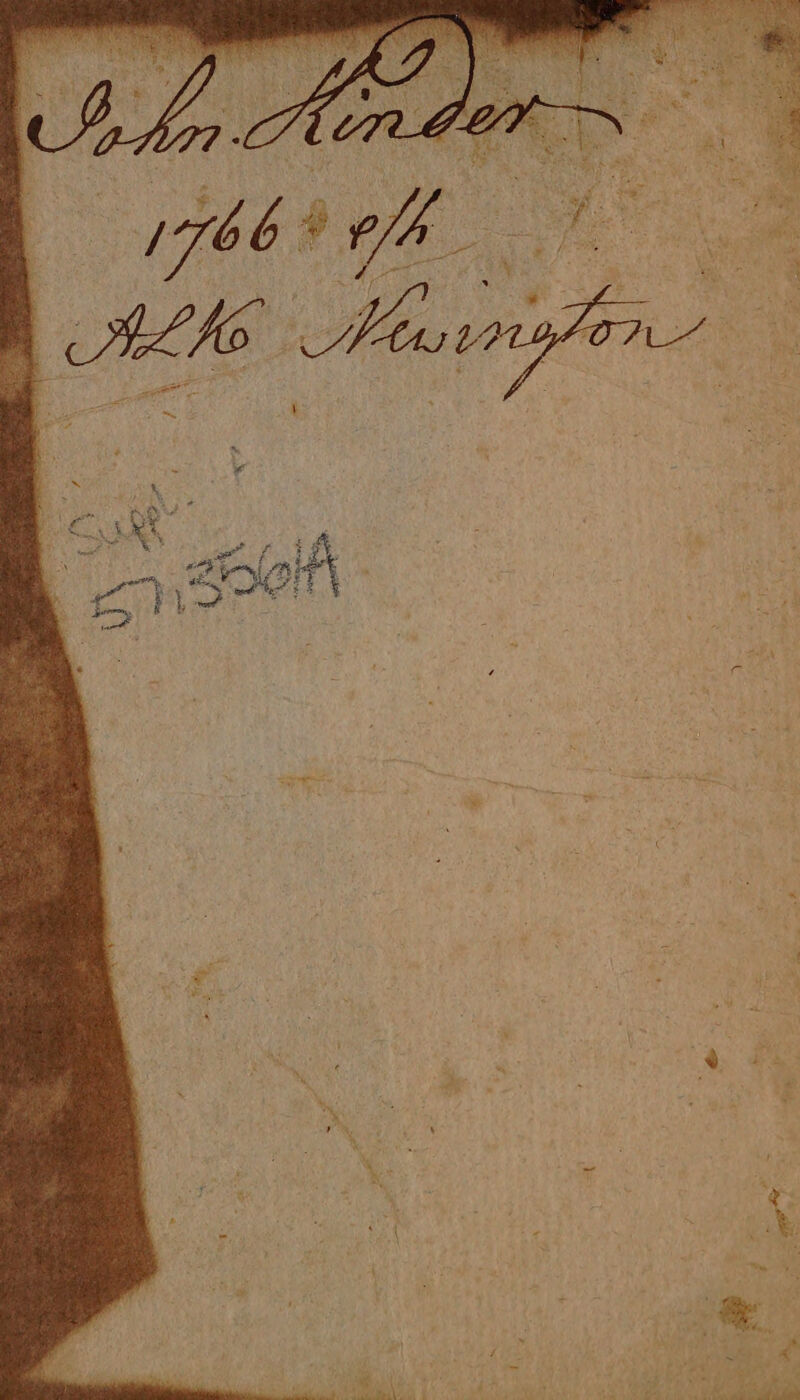 John Kinder
1766
Newington
Suppl.
57,356/A